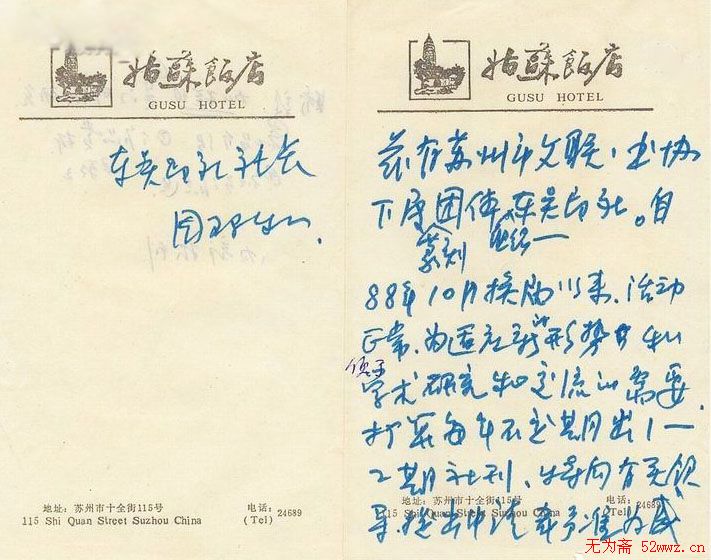 姑蘇飯店
GUSU HOTEL
东吴印社 社会
地址：苏州市十全街115号
电话：
115 Shi Quan Street Suzhou China
(Tel)
24689
姑蘇飯店
GUSU HOTEL
兹有苏州市文联、书协
下属团体 东吴印社。自
篆刻
88年10月换届以来，活动
正常，为适应新的形势
学术研究和交流的需要，
打算每年不定期出1一
2期社刊，特向有关领
导提出申请
地址：苏州市十全街115号
电话：
115 Shi Quan Street Suzhou China
(Tel)
24689
无为斋 52wwz.cn